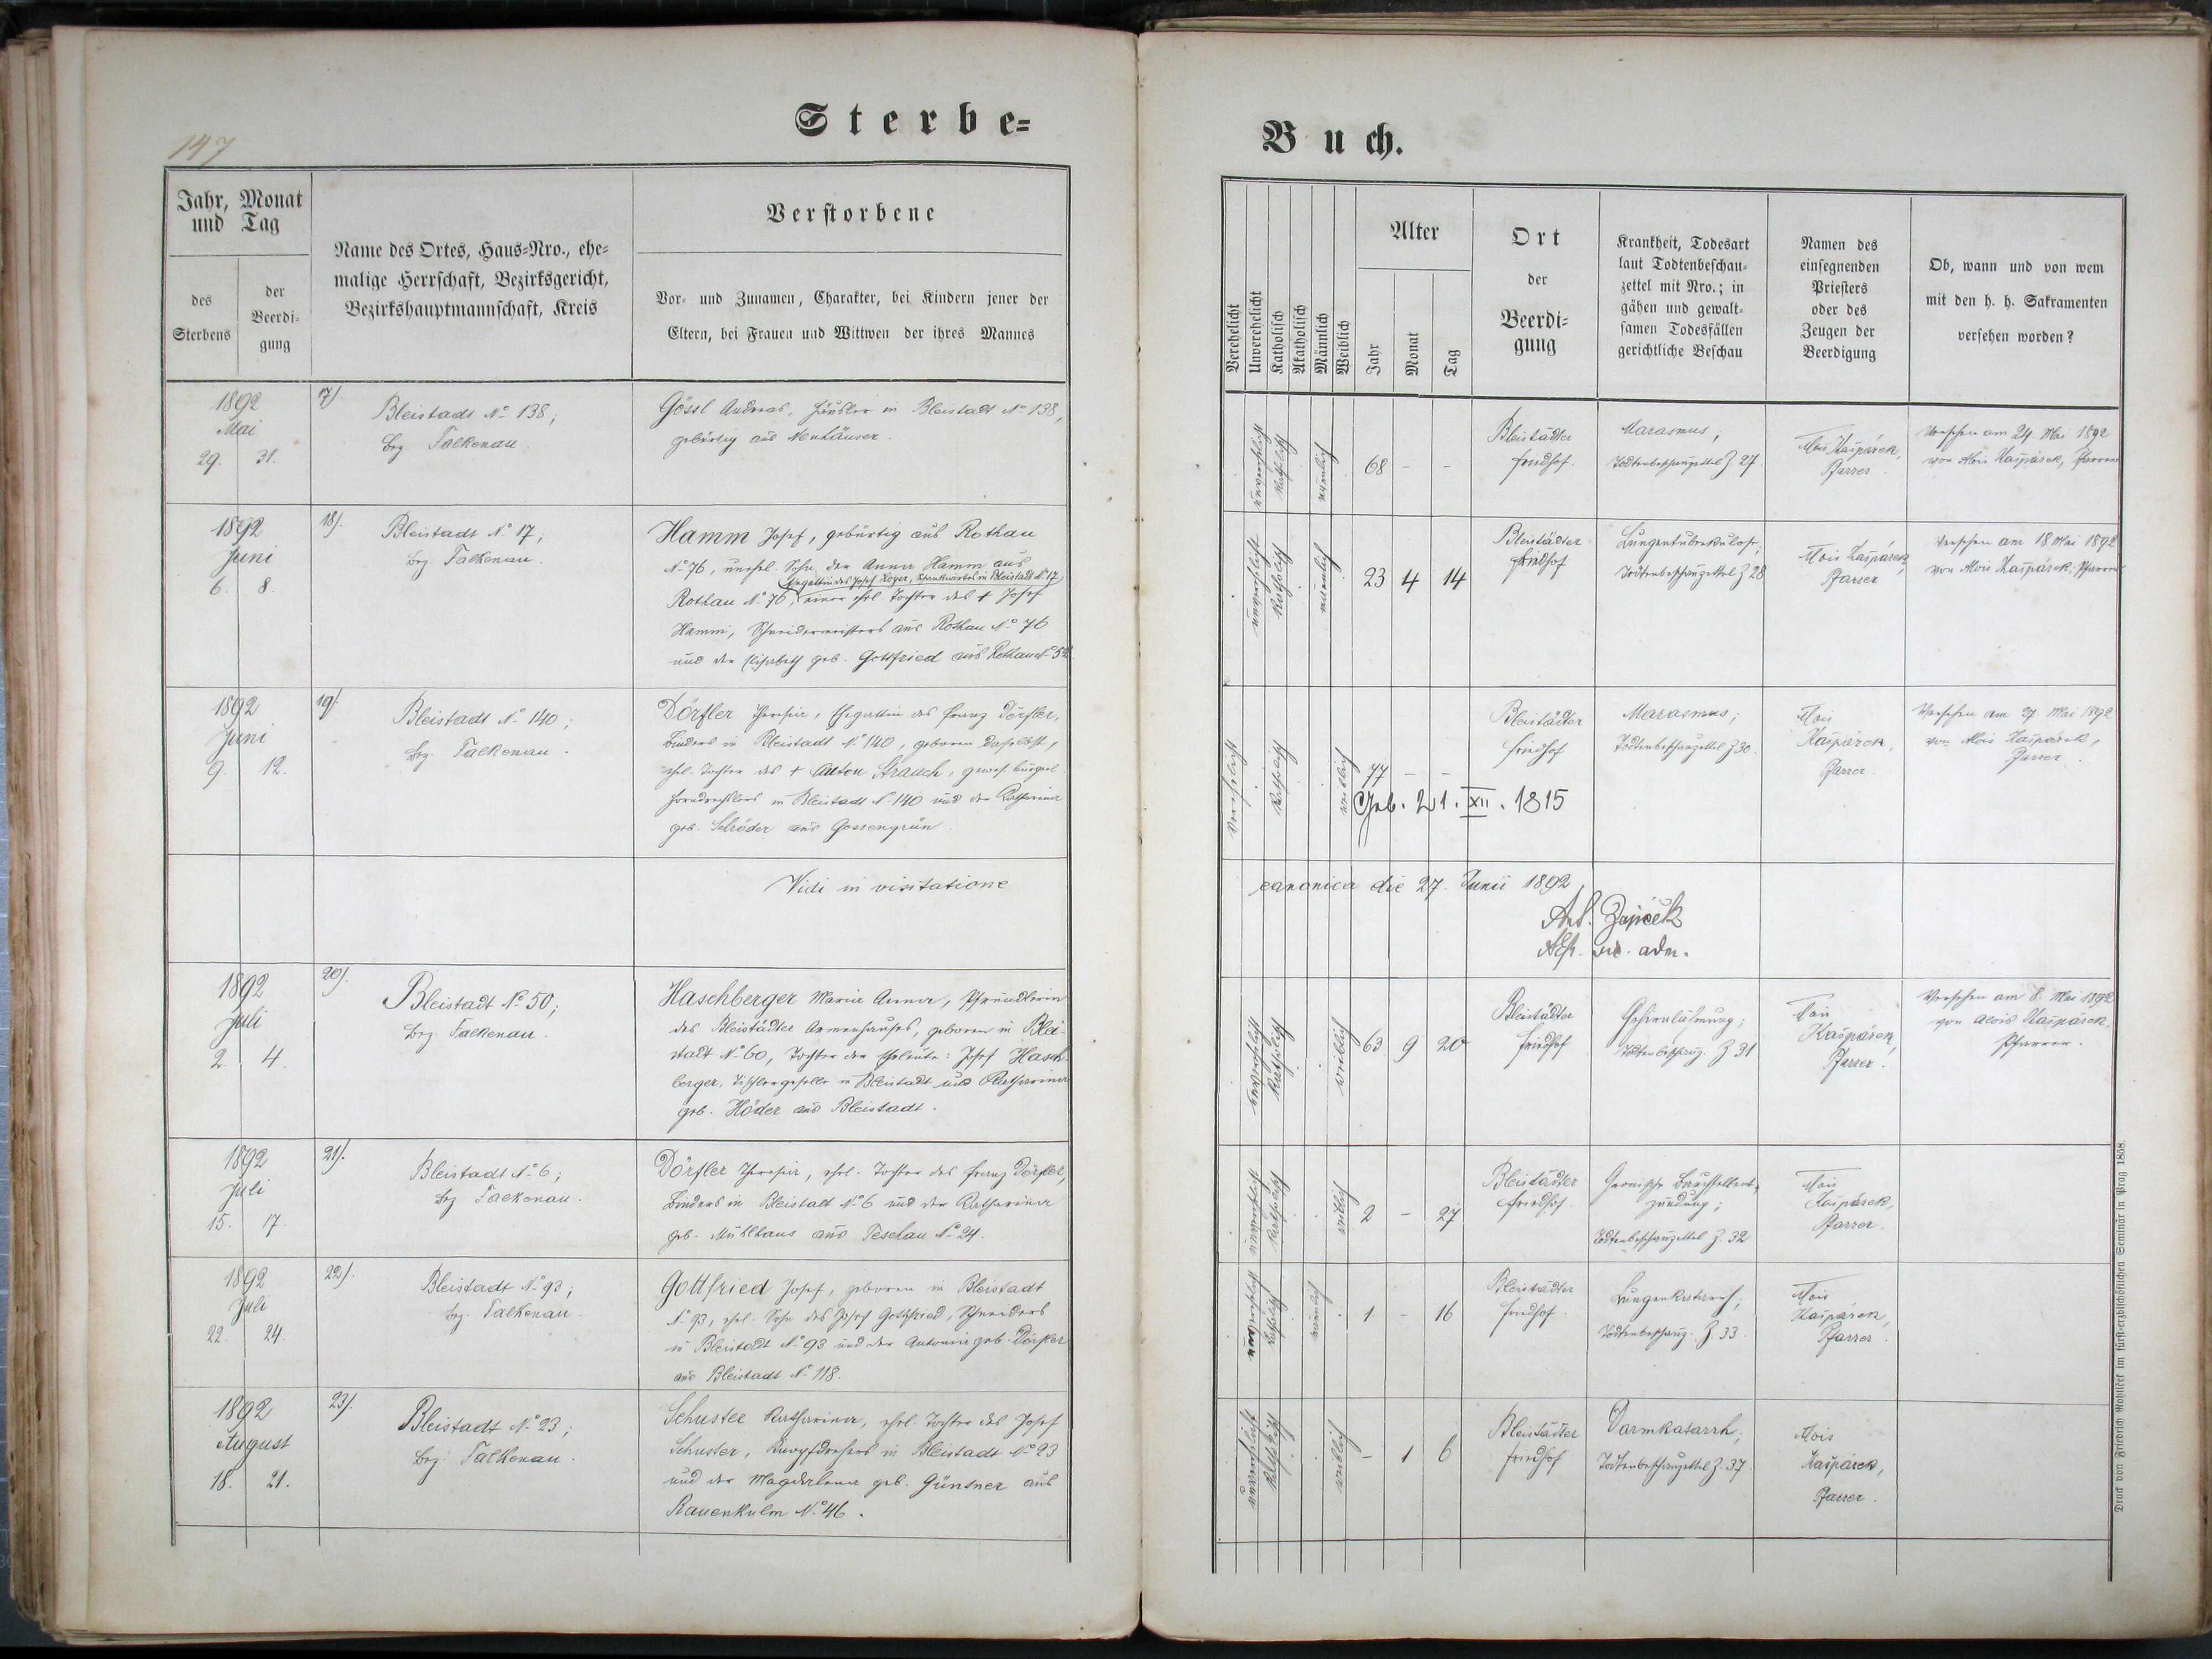 147
Sterbe=
Buch.
Jahr, Monat
und Tag
des
Sterbens
der
Beerdi=
gung
Name des Ortes, Haus=Nro., ehe=
malige Herrschaft, Bezirksgericht,
Bezirkshauptmannschaft, Kreis
Verstorbene
Vor= und Zunamen, Charakter, bei Kindern jener der
Eltern, bei Frauen und Wittwen der ihres Mannes
Verehelicht
Unverehelicht
Katholisch
Akatholisch
Männlich
Weiblich
Alter
Jahr
Monat
Tag
Ort
der
Beerdi=
gung
Krankheit, Todesart
laut Todtenbeschau=
zettel mit Nro.; in
gähen und gewalt=
samen Todesfällen
gerichtliche Beschau
Namen des
einsegnenden
Priesters
oder des
Zeugen der
Beerdigung
Ob, wann und von wem
mit den h. h. Sakramenten
versehen worden?
1892
Mai
29. 31.
17).
Bleistadt No 138;
Bez Falkenau.
Gössl Andreas, Häusler in Bleistadt No 138,
gebürtig aus Neuhäuser.
unverehelicht
katholisch
männlich
68 - -
Bleistädter
Friedhof.
Marasmus,
Todtenbeschauzettel Z 27
Alois Kašpárek,
Pfarrer.
Versehen am 24. Mai 1892
von Alois Kašpárek, Pfarrer
1892
Juni
6. 8.
18).
Bleistadt No 17;
Bez Falkenau.
Hamm Josef, gebürtig aus Rothau
No 76, unehel. Sohn der Anna Hamm aus
Ehegattin des Josef Koger, Schenkwirtes in Bleistadt No 17,
Rothau No 76, einer ehel. Tochter des + Josef
Hamm, Schneidermeisters aus Rothau No 76
und der Elisabeth geb. Gottfried aus Rothau No 52
unverehelicht
katholisch
männlich
23 4 14
Bleistädter
Friedhof
Lungentuberkulose,
Todtenbeschauzettel Z 28
Alois Kašpárek,
Pfarrer
Versehen am 18 Mai 1892
von Alois Kašpárek, Pfarrer
1892
Juni
9. 12.
19).
Bleistadt No 140;
Bez. Falkenau.
Dörfler Theresia, Ehegattin des Franz Dörfler,
Binders in Bleistadt No 140, geboren daselbst,
ehel. Tochter des + Anton Strauch, gewes. bürgerl.
in Bleistadt No 140 und der Katharina
geb. Schröder aus Gossengrün.
verehelicht
katholisch
weiblich
77 - -
Geb. 21. XII. 1815
Bleistädter
Friedhof
Marasmus;
Todtenbeschauzettel Z 30.
Alois
Kašpárek,
Pfarrer.
Versehen am 27. Mai 1892
von Alois Kašpárek,
Pfarrer.
Vidi in visitatione
canonica die 27. Junii 1892
Ant. Zajíček
adm.
1892
Juli
2. 4.
20).
Bleistadt No 50;
Bez. Falkenau.
Haschberger Maria Anna, Pfründlerin
des Bleistädter Armenhauses, geboren in Blei-
stadt No 60, Tochter der Eheleute: Josef Hasch-
berger, Tischlergeselle in Bleistadt und Katharina
geb. Höder aus Bleistadt.
unverehelicht
katholisch
weiblich
63 9 20
Bleistädter
Friedhof
Gehirnlähmung;
Todtenbeschauz. Z 31
Alois
Kašpárek,
Pfarrer.
Versehen am 8. Mai 1892
von Alois Kašpárek,
Pfarrer.
1892
Juli
15. 17.
21).
Bleistadt No 6;
Bez Falkenau.
Dörfler Theresia, ehel. Tochter des Franz Dörfler,
Binders in Bleistadt No 6 und der Katharina
geb. Mühlhans aus Teschau No 24.
unverehelicht
katholisch
weiblich
2 - 27
Bleistädter
Friedhof
Chronische Bauchfellent-
zündung;
Todtenbeschauzettel Z. 32
Alois
Kašpárek,
Pfarrer.
1892
Juli
22. 24.
22).
Bleistadt No 93;
Bez. Falkenau.
Gottfried Josef, geboren in Bleistadt
No 93, ehel. Sohn des Josef Gottfried, Schneiders
in Bleistadt No 93 und der Antonia geb. Dörfler
aus Bleistadt No 118.
katholisch
männlich
1 - 16
Bleistädter
Friedhof.
Lungenkatarrh;
Todtenbeschauz. Z 33.
Alois
Kašpárek,
Pfarrer.
1892
August
18. 21.
23).
Bleistadt No 23;
Bez. Falkenau.
Schuster Katharina, ehel. Tochter des Josef
Schuster, in Bleistadt No 23
und der Magdalena geb. Güntner aus
Rauenkulm No 46.
unverehelicht
katholisch
weiblich
- 1 6
Bleistädter
Friedhof
Darmkatarrh;
Todtenbeschauzettel Z. 37.
Alois
Kašpárek,
Pfarrer.
Druck von Friedrich Rohliček im fürst=erzbischöflichen Seminär in Prag 1858.